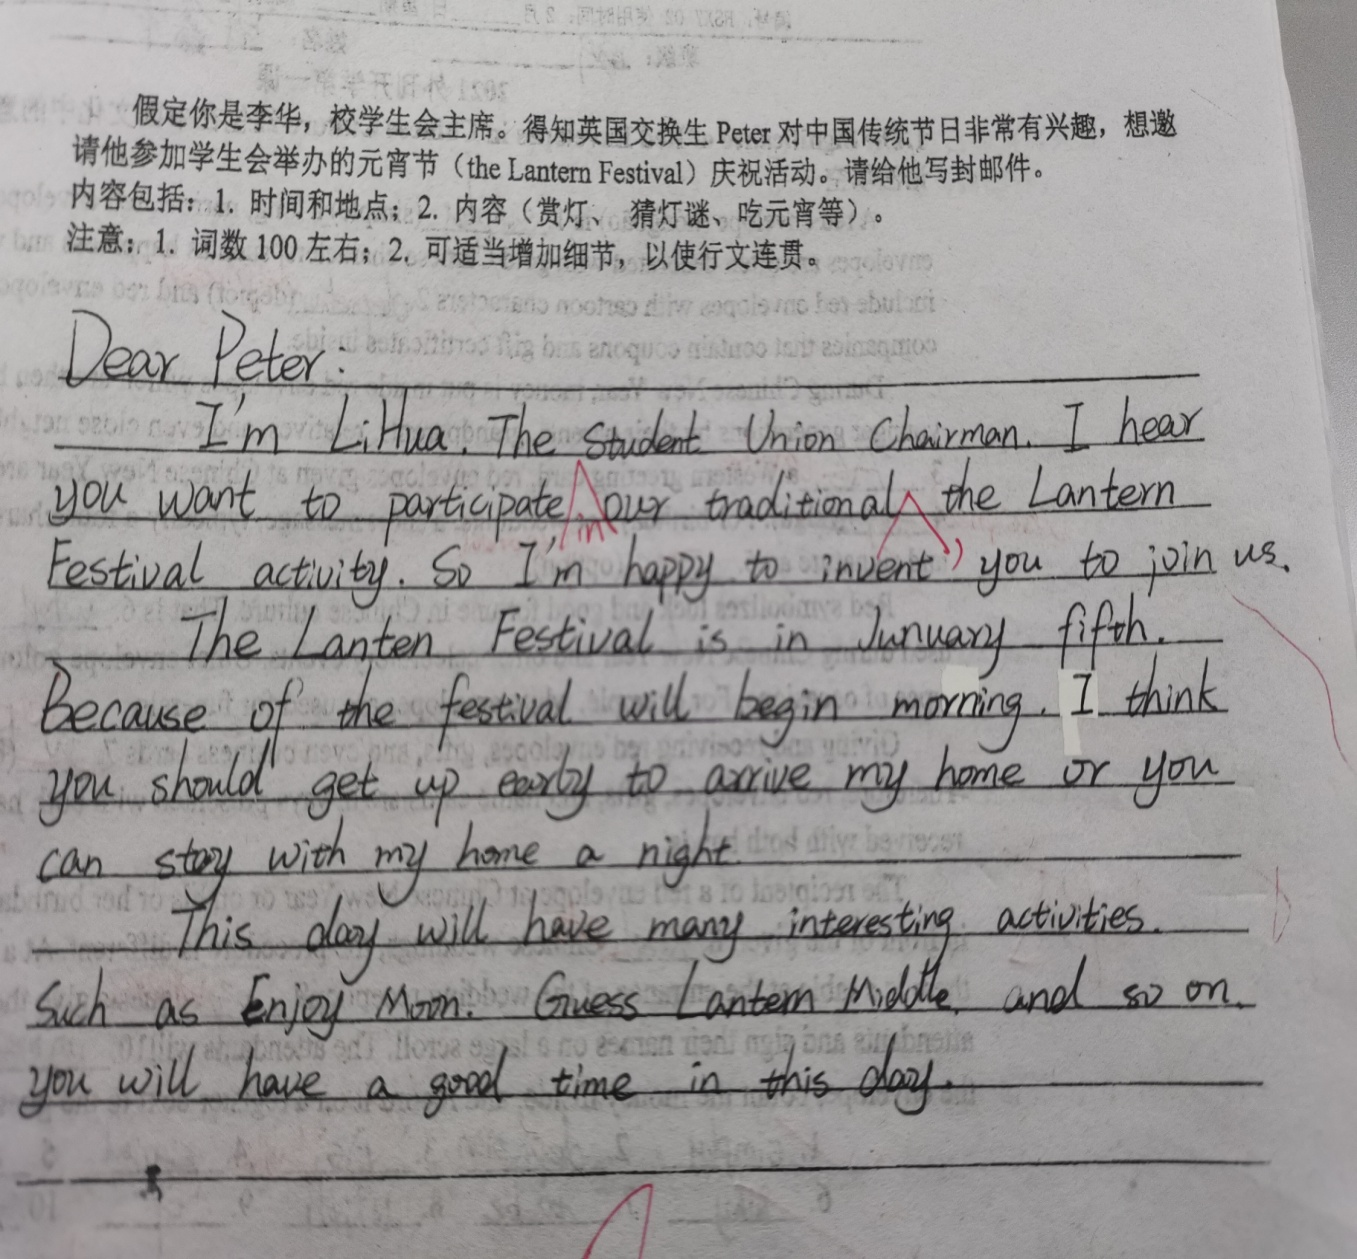 假定你是李华，校学生会主席。得知英国交换生 Peter 对中国传统节日非常有兴趣，想邀
请他参加学生会举办的元宵节（the Lantern Festival）庆祝活动。请给他写封邮件。
内容包括：1. 时间和地点；2. 内容（赏灯、猜灯谜、吃元宵等）。
注意：1. 词数 100 左右；2. 可适当增加细节，以使行文连贯。
Dear Peter:
I'm LiHua. The Student Union Chairman. I hear
you want to participate our traditional the Lantern
in
Festival activity. So I'm happy to invent you to join us.
The Lanten Festival is in Junuary fifth.
Because of the festival will begin morning. I think
you should get up early to arrive my home or you
can stay with my home a night.
This day will have many interesting activities.
Such as Enjoy Moon. Guess Lantern Middle. and so on.
you will have a good time in this day.